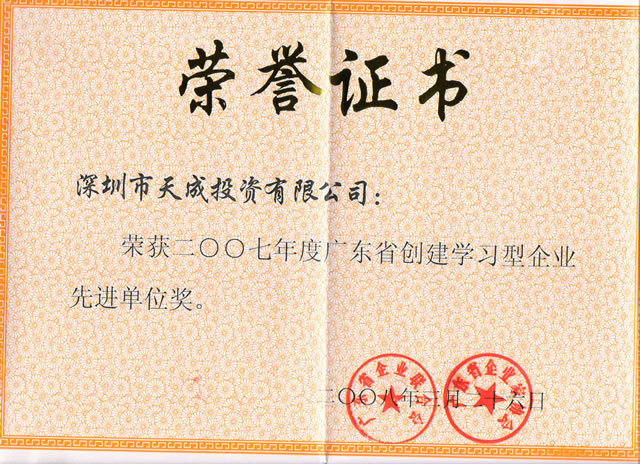 荣誉证书
深圳市天成投资有限公司：
荣获二〇〇七年度广东省创建学习型企业
先进单位奖。
广东省企业联合会
广东省企业家协会
二〇〇八年三月二十六日